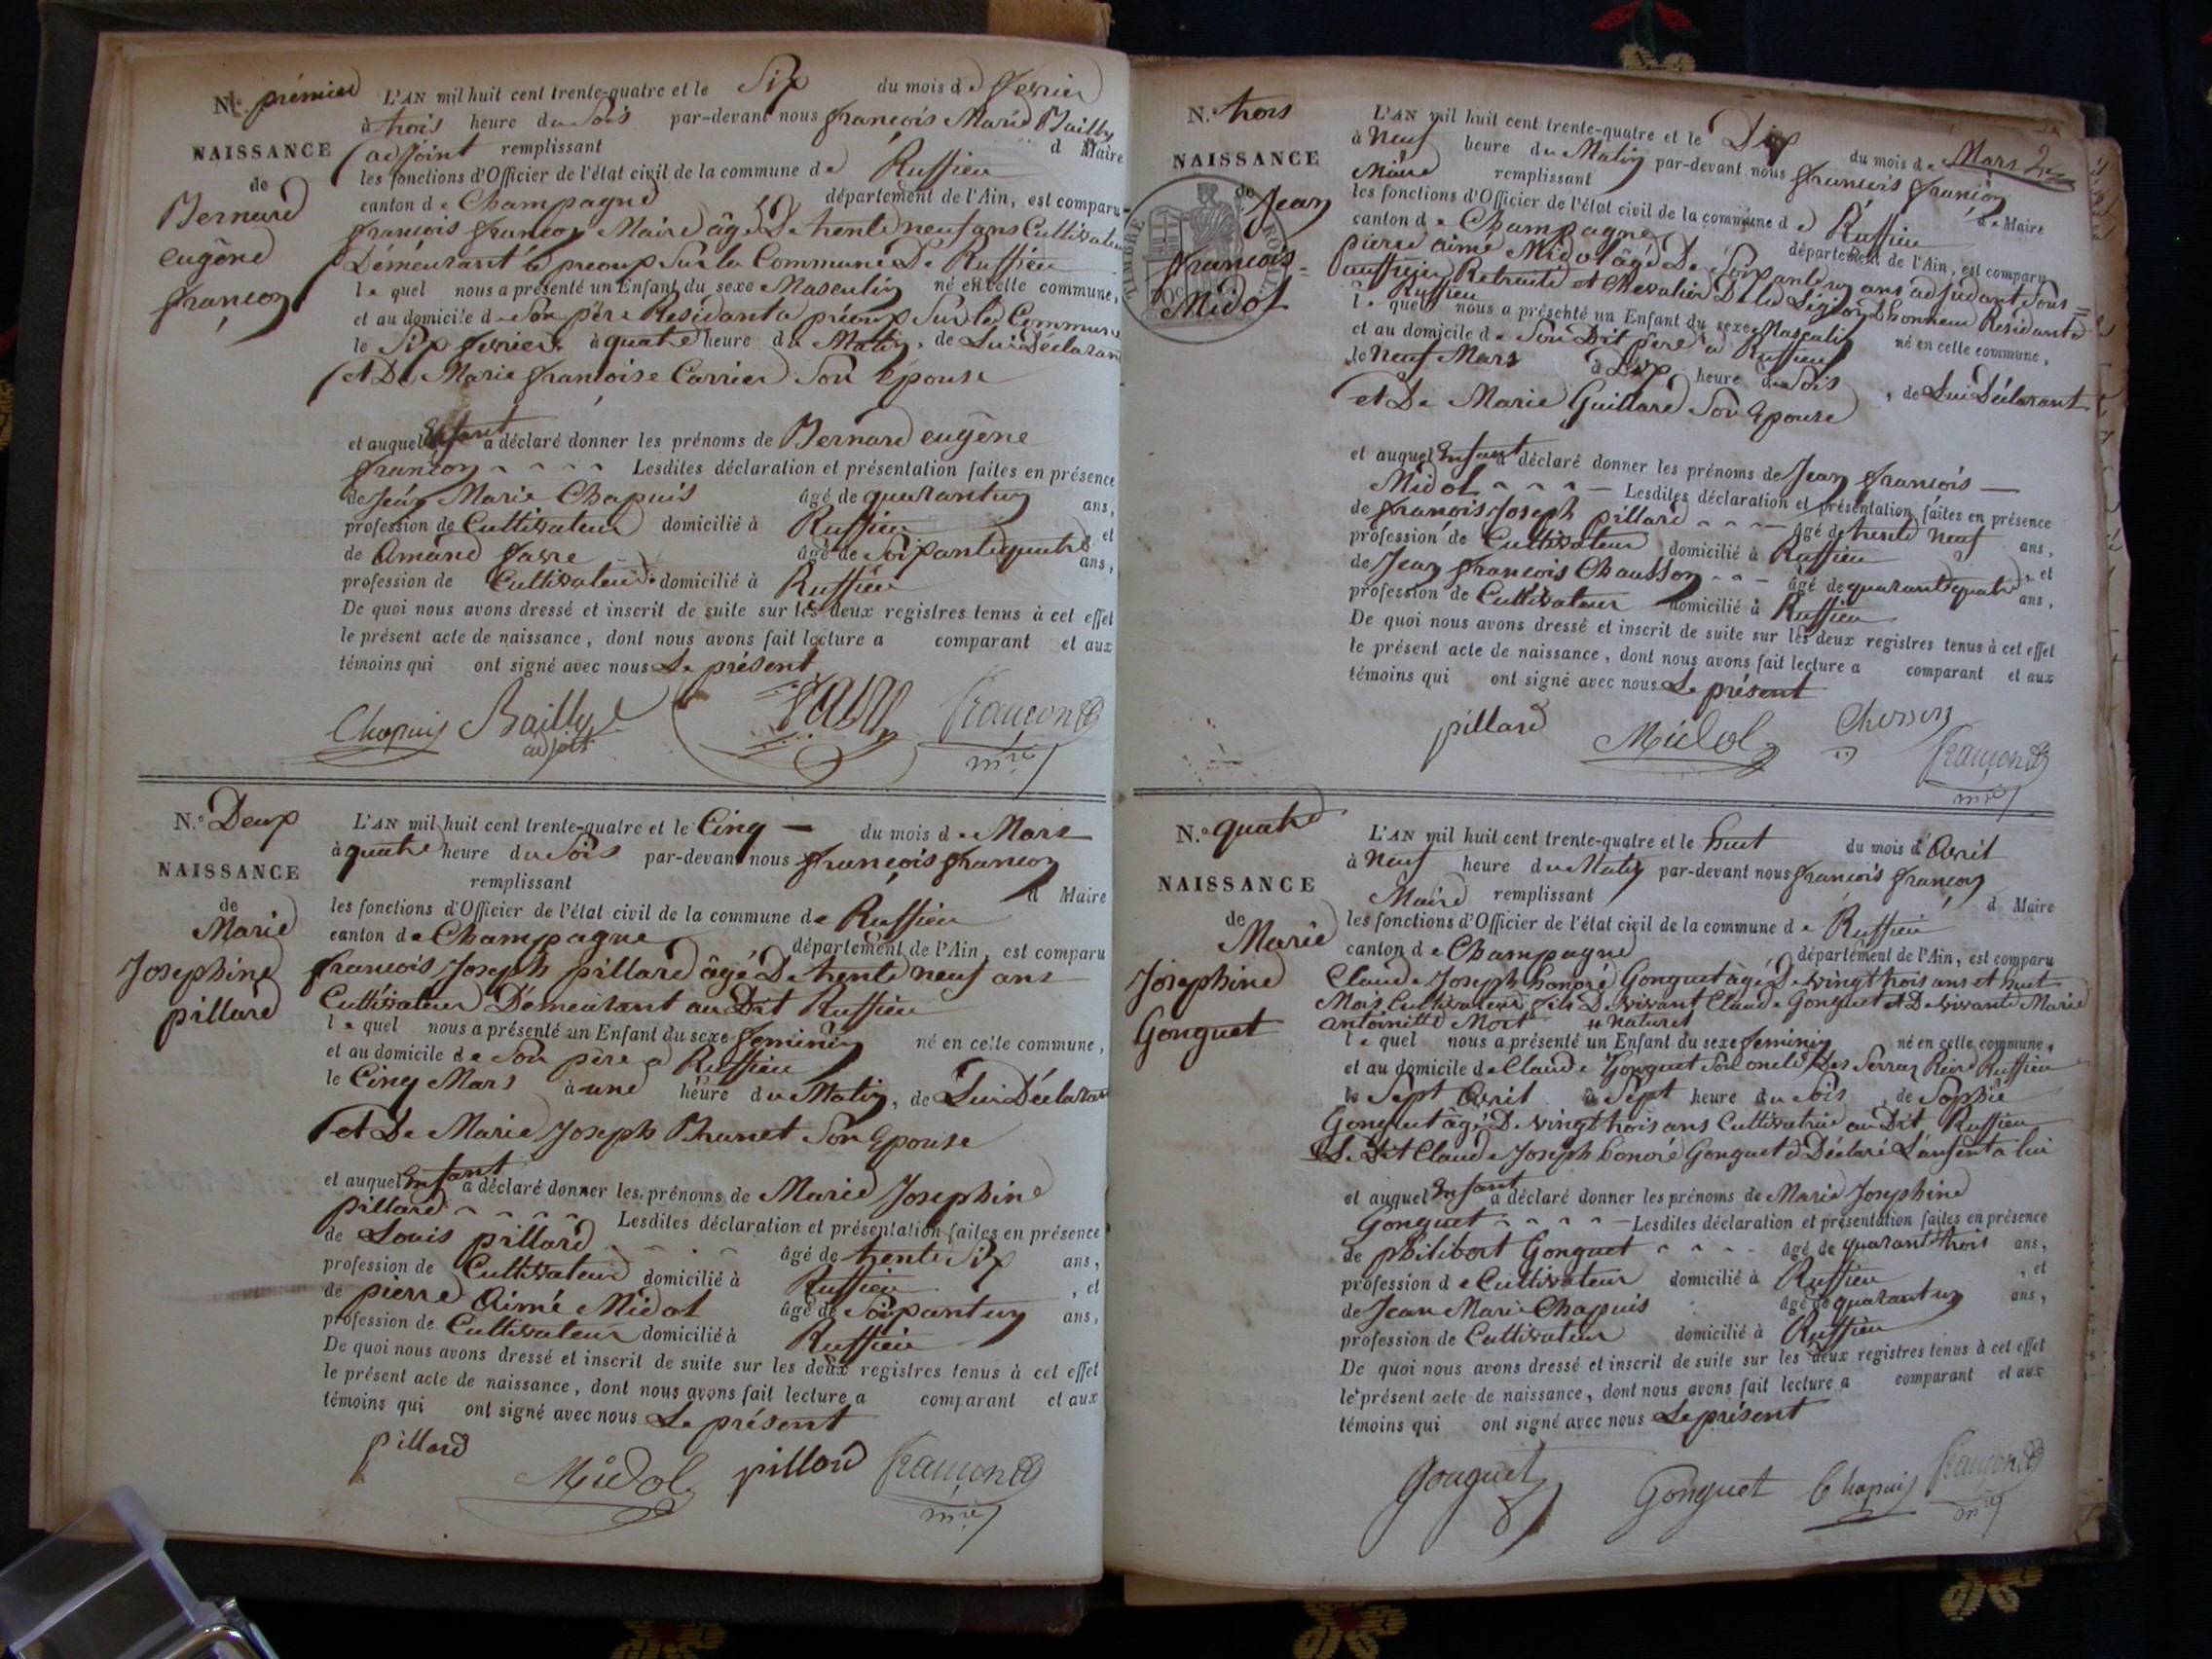 N.o prémier
NAISSANCE
de
Bernard
eugène
françon
L'AN mil huit cent trente-quatre et le Six du mois de fevrier
à trois heure du Soir par-devant nous françois Marie Bailly
adjoint remplissant d Maire
les fonctions d'Officier de l'état civil de la commune de Ruffieu
canton de Champagne département de l'Ain, est comparu
françois françon Maire âgé De trente neuf ans Cultivateur
Démeurant à preoux Sur la Commune De Ruffieu
le quel nous a présenté un Enfant du sexe Masculin né en cette commune,
et au domicile de Son père Residant a préoux Sur la Commune
le Six fevrier à quatre heure du Matin, de Lui Déclarant
et De Marie françoise Carrier Son épouse
et auquel Enfant a déclaré donner les prénoms de Bernard eugène
françon Lesdites déclaration et présentation faites en présence
de Jean Marie Chapuis âgé de quarantun ans,
profession de Cultivateur domicilié à Ruffieu et
de Amand favre âgé de Soixantequatre ans,
profession de Cultivateur domicilié à Ruffieu
De quoi nous avons dressé et inscrit de suite sur les deux registres tenus à cet effet
le présent acte de naissance, dont nous avons fait lecture a comparant et aux
témoins qui ont signé avec nous Le présent
Chapuis Bailly françon
adjoit mre
N.o Deux
NAISSANCE
de
Marie
Josephine
pillard
L'AN mil huit cent trente-quatre et le Cinq du mois de Mars
à quatre heure du Soir par-devant nous françois françon
remplissant d Maire
les fonctions d'Officier de l'état civil de la commune de Ruffieu
canton de Champagne département de l'Ain, est comparu
francois Joseph pillard âgé De trente neuf ans
Cultivateur Démeurant au Dit Ruffieu
le quel nous a présenté un Enfant du sexe feminin né en cette commune,
et au domicile de Son père a Ruffieu
le Cinq Mars à une heure du Matin, de Lui Déclarant
et De Marie Joseph Brunet Son Epouse
et auquel Enfant a déclaré donner les prénoms de Marie Josephine
pillard Lesdites déclaration et présentation faites en présence
de Louis pillard âgé de trente Six ans,
profession de Cultivateur domicilié à Ruffieu, et
de pierre Aimé Midol âgé de Soixantun ans,
profession de Cultivateur domicilié à Ruffieu
De quoi nous avons dressé et inscrit de suite sur les deux registres tenus à cet effet
le présent acte de naissance, dont nous avons fait lecture a comparant et aux
témoins qui ont signé avec nous Le présent
pillard Midol pillard françon
mre
N.o trois
NAISSANCE
de Jean
françois
Midol
TIMBRE ROYAL
L'AN mil huit cent trente-quatre et le Dix du mois de Mars
à Neuf heure du Matin par-devant nous françois françon
Maire remplissant de Maire
les fonctions d'Officier de l'état civil de la commune de Ruffieu
canton de Champagne département de l'Ain, est comparu
pierre aimé Midol âgé De Soixantun ans adjudant Sous
officier Retraité et Chevalier De la Légion D'honneur Residant à
Ruffieu
le quel nous a présenté un Enfant du sexe Masculin né en cette commune,
et au domicile de Son Dit père à Ruffieu
le Neuf Mars à Dix heure du Soir, de Lui Déclarant
et De Marie Guillard Son Epouse
et auquel Enfant a déclaré donner les prénoms de Jean françois
Midol Lesdites déclaration et présentation faites en présence
de françois Joseph pillard âgé de trente Neuf ans,
profession de Cultivateur domicilié à Ruffieu, et
de Jean françois Chausson âgé de quarantequatre ans,
profession de Cultivateur domicilié à Ruffieu
De quoi nous avons dressé et inscrit de suite sur les deux registres tenus à cet effet
le présent acte de naissance, dont nous avons fait lecture a comparant et aux
témoins qui ont signé avec nous Le présent
pillard Midol françon
mre
N.o quatre
NAISSANCE
de
Marie
Josephine
Gonguet
L'AN mil huit cent trente-quatre et le huit du mois d'Avril
à Neuf heure du Matin par-devant nous françois françon
Maire remplissant d Maire
les fonctions d'Officier de l'état civil de la commune de Ruffieu
canton de Champagne département de l'Ain, est comparu
Claude Joseph honoré Gonguet âgé De vingt trois ans et huit
Mois Cultivateur fils De vivant Claude Gonguet et De vivante Marie
antoinette Mort # naturel
le quel nous a présenté un Enfant du sexe feminin né en cette commune,
et au domicile de Claude Gonguet Son oncle Ruffieu
le Sept Avril à Sept heure du Soir, de Sophie
Gonguet âgé De vingt trois ans Cultivatrice au Dit Ruffieu
Le Dit Claude Joseph honoré Gonguet à Déclaré L'anfent a lui
et auquel Enfant a déclaré donner les prénoms de Marie Josephine
Gonguet Lesdites déclaration et présentation faites en présence
de philibert Gonguet âgé de quarantetrois ans,
profession de Cultivateur domicilié à Ruffieu, et
de Jean Marie Chapuis âgé de quarantun ans,
profession de Cultivateur domicilié à Ruffieu
De quoi nous avons dressé et inscrit de suite sur les deux registres tenus à cet effet
le présent acte de naissance, dont nous avons fait lecture a comparant et aux
témoins qui ont signé avec nous Le présent
Gonguet Gonguet Chapuis françon
mre